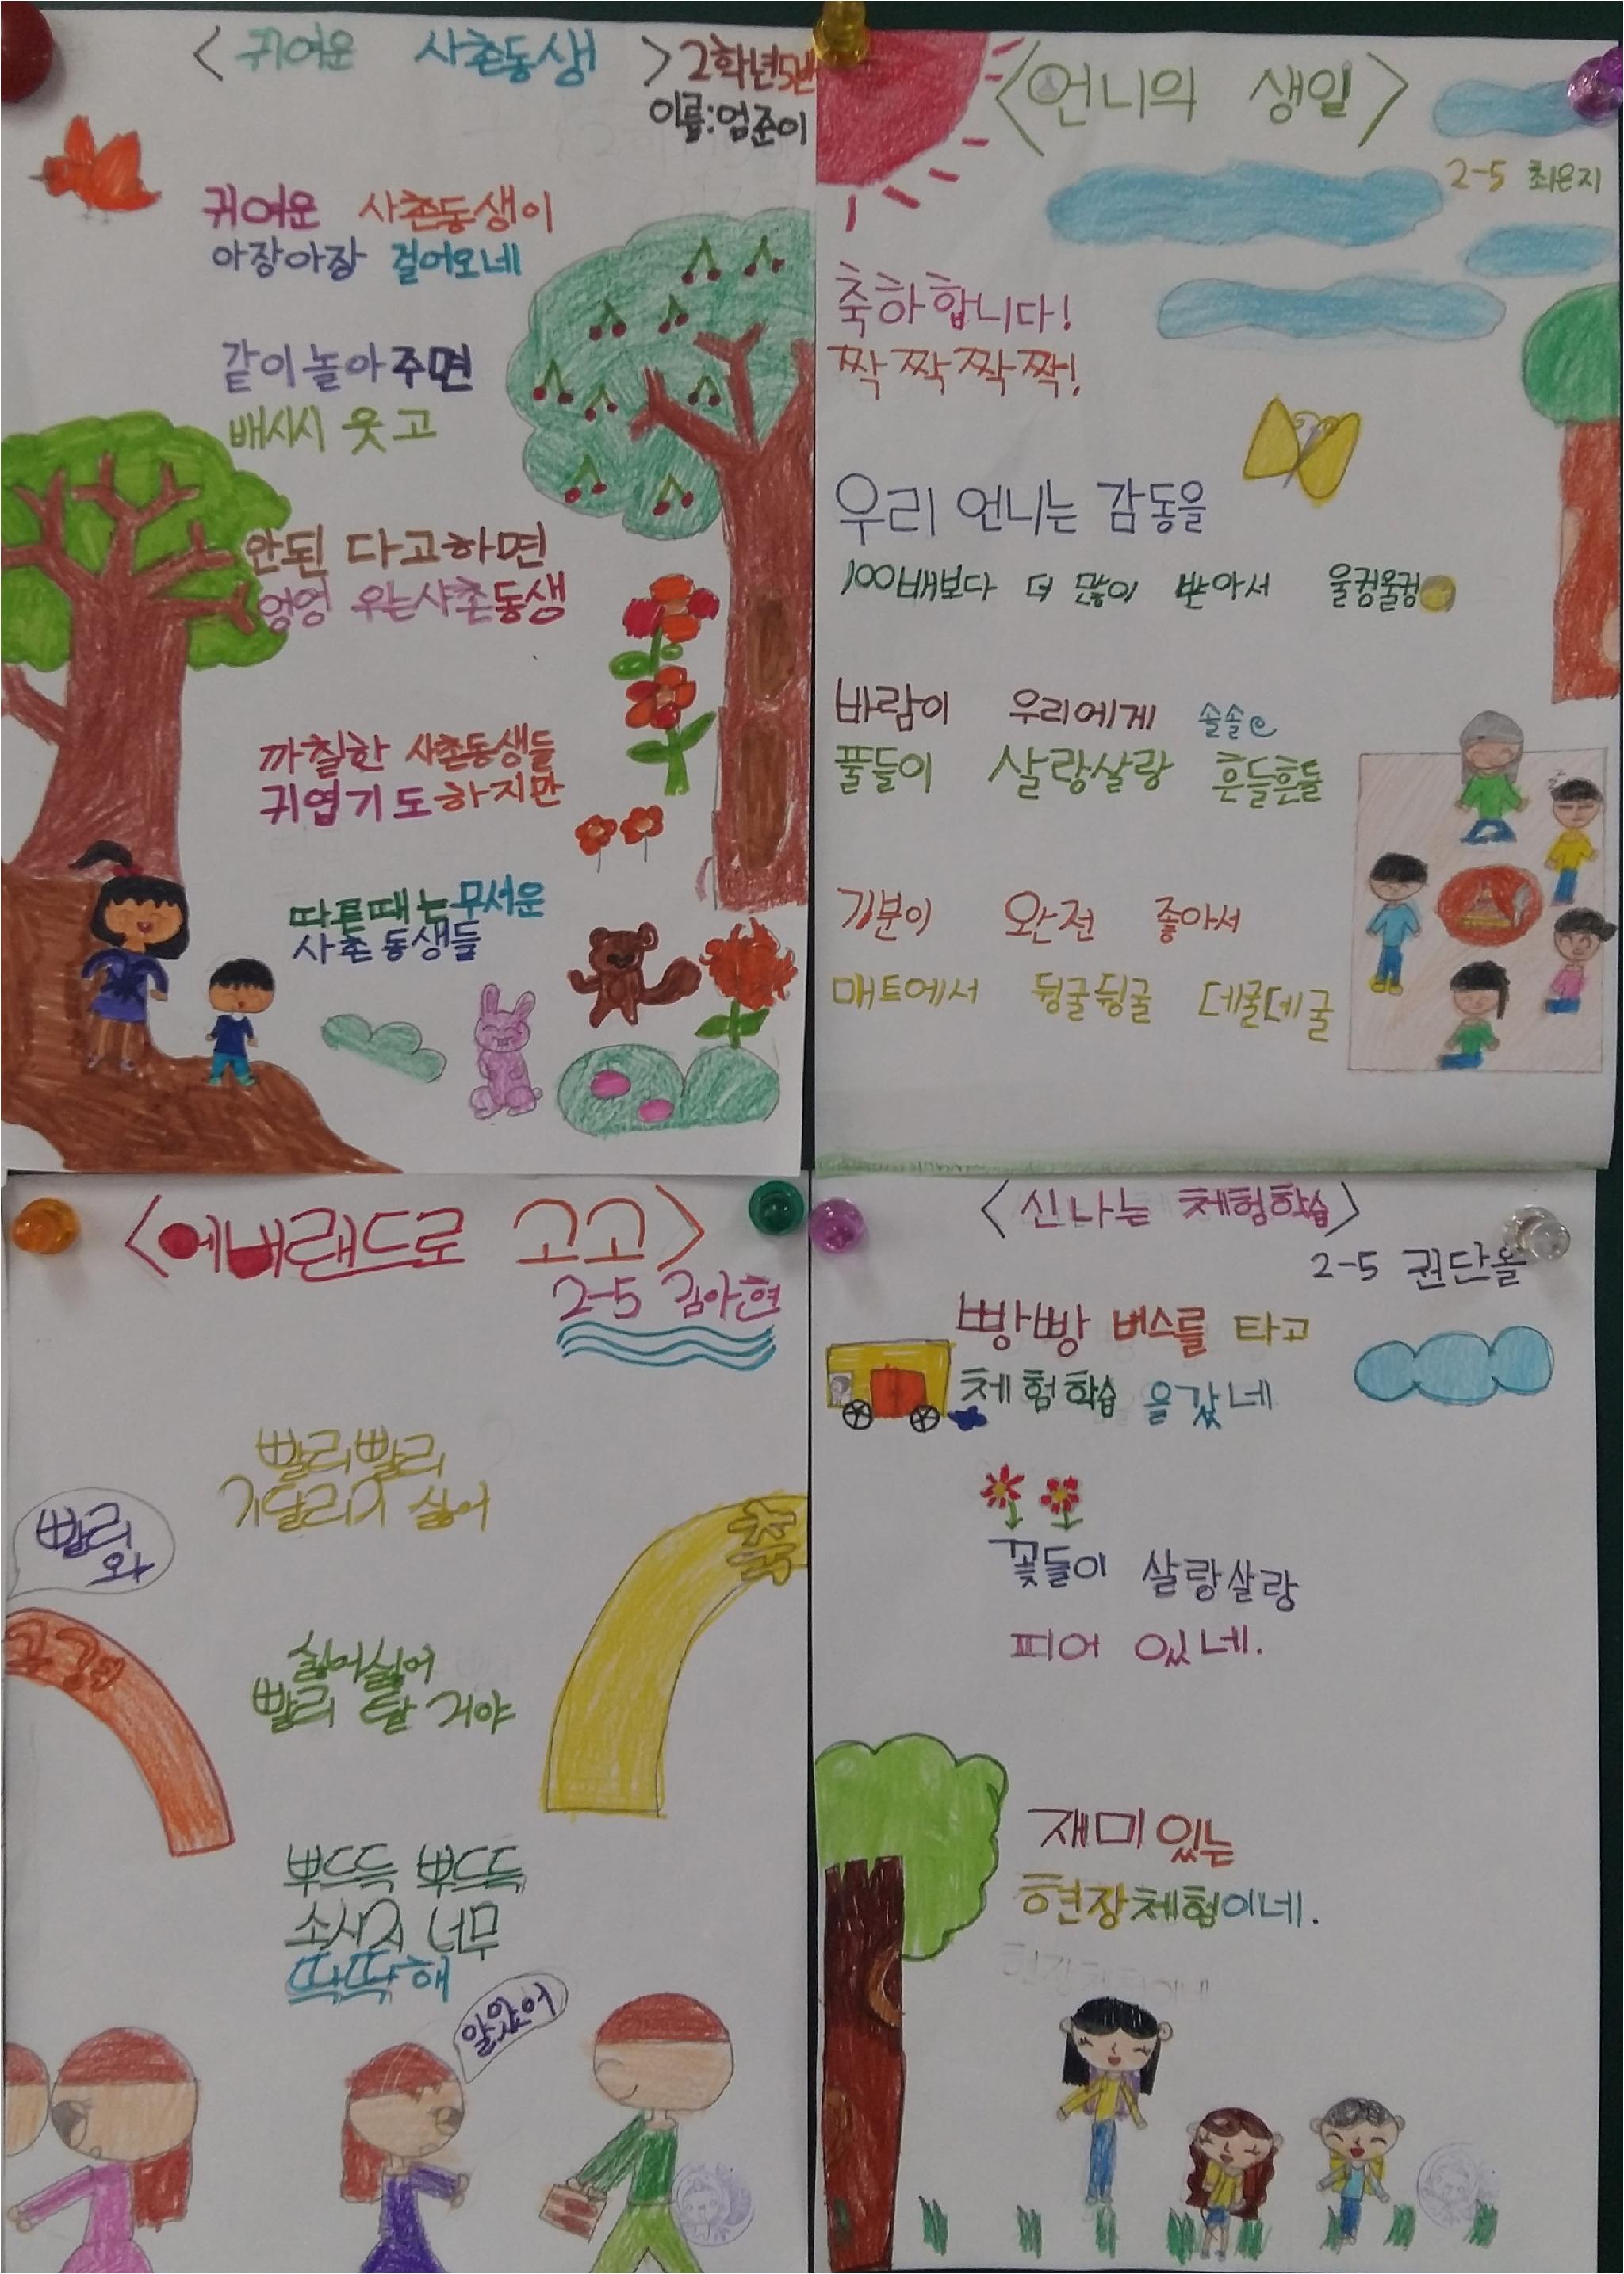 <귀여운 사촌동생>
2학년5반
이름:엄준이
귀여운 사촌동생이
아장아장 걸어오네
같이놀아주면
배시시 웃고
안된 다고하면
엉엉 우는사촌동생
까칠한 사촌동생들
귀엽기도하지만
따른때는무서운
사촌동생들
<언니의 생일>
2-5 최은지
축하합니다!
짝짝짝짝!
우리 언니는 감동을
100배보다 더 많이 받아서 울컹울컹
바람이 우리에게 솔솔
풀들이 살랑살랑 흔들흔들
기분이 완전 좋아서
매트에서 뒹굴뒹굴 데굴데굴
<에버랜드로 고고>
2-5 김아현
빨리빨리
기달리기 싫어
빨리
와
싫어싫어
빨리 탈 거야
뿌드득 뿌드득
소시지 너무
딱딱해
알았어
<신나는 체험학습>
2-5 권단올
빵빵 버스를 타고
체험학습 을갔네
꽃들이 살랑살랑
피어 있네.
재미있는
현장체험이네.